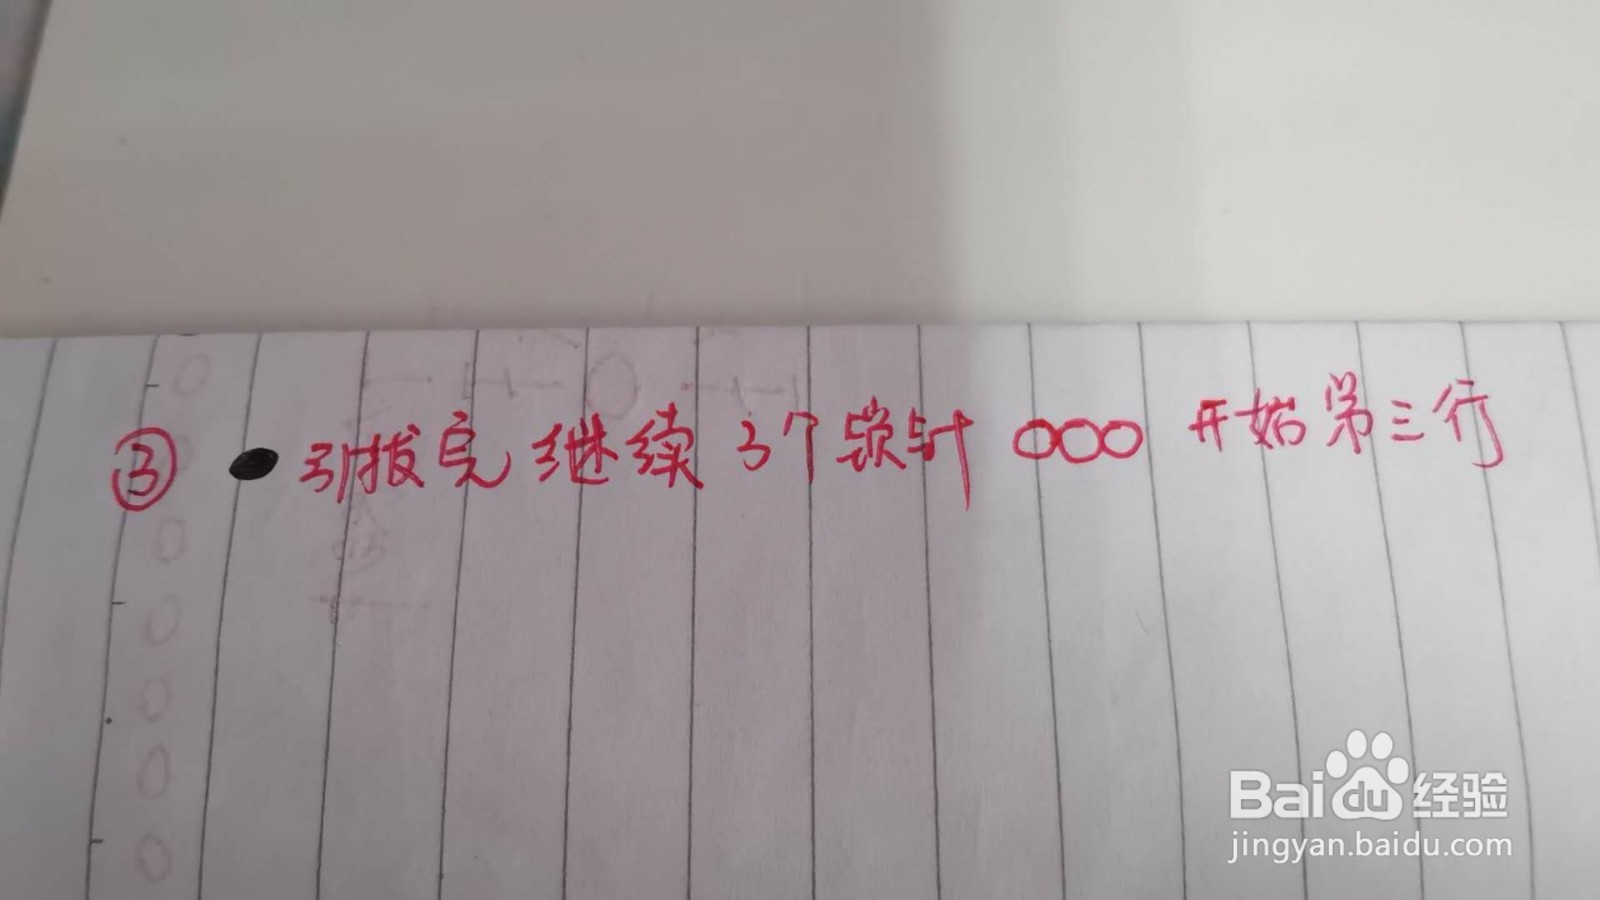 ③ ● 引拔完继续3个锁针 ○○○ 开始第三行
Baidu 经验
jingyan.baidu.com